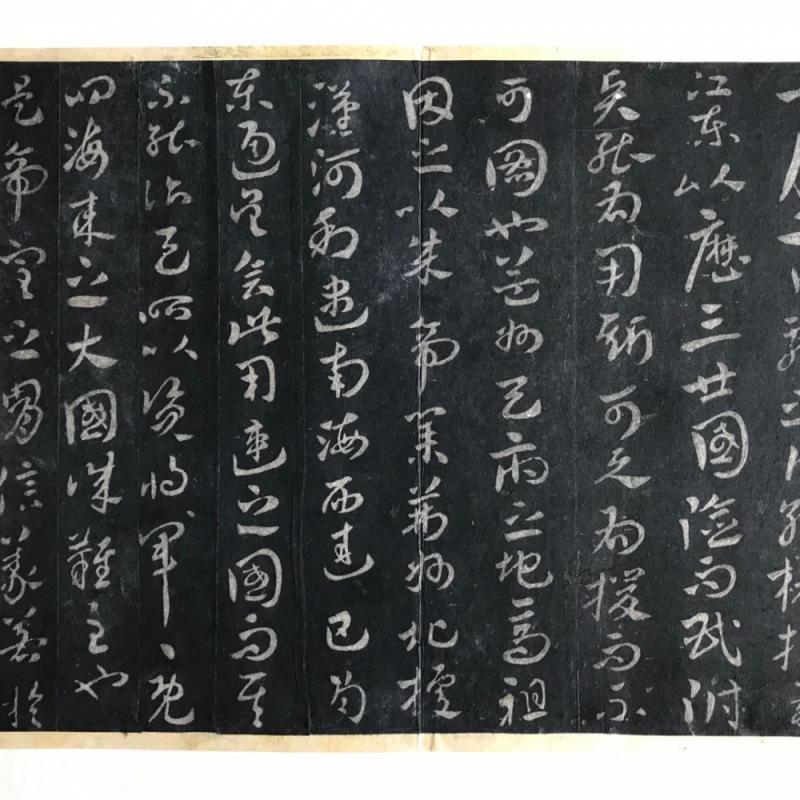 江東以歷三世國險而民附
賢能為用斯可為援而不
可圖也益州天府之地高祖
因之以成帝業荊州北據
漢沔利盡南海西連巴蜀
東通吳會此用武之國而其
不能所以資將軍〻既
四海之大國難也
是帝室之胄信義著於